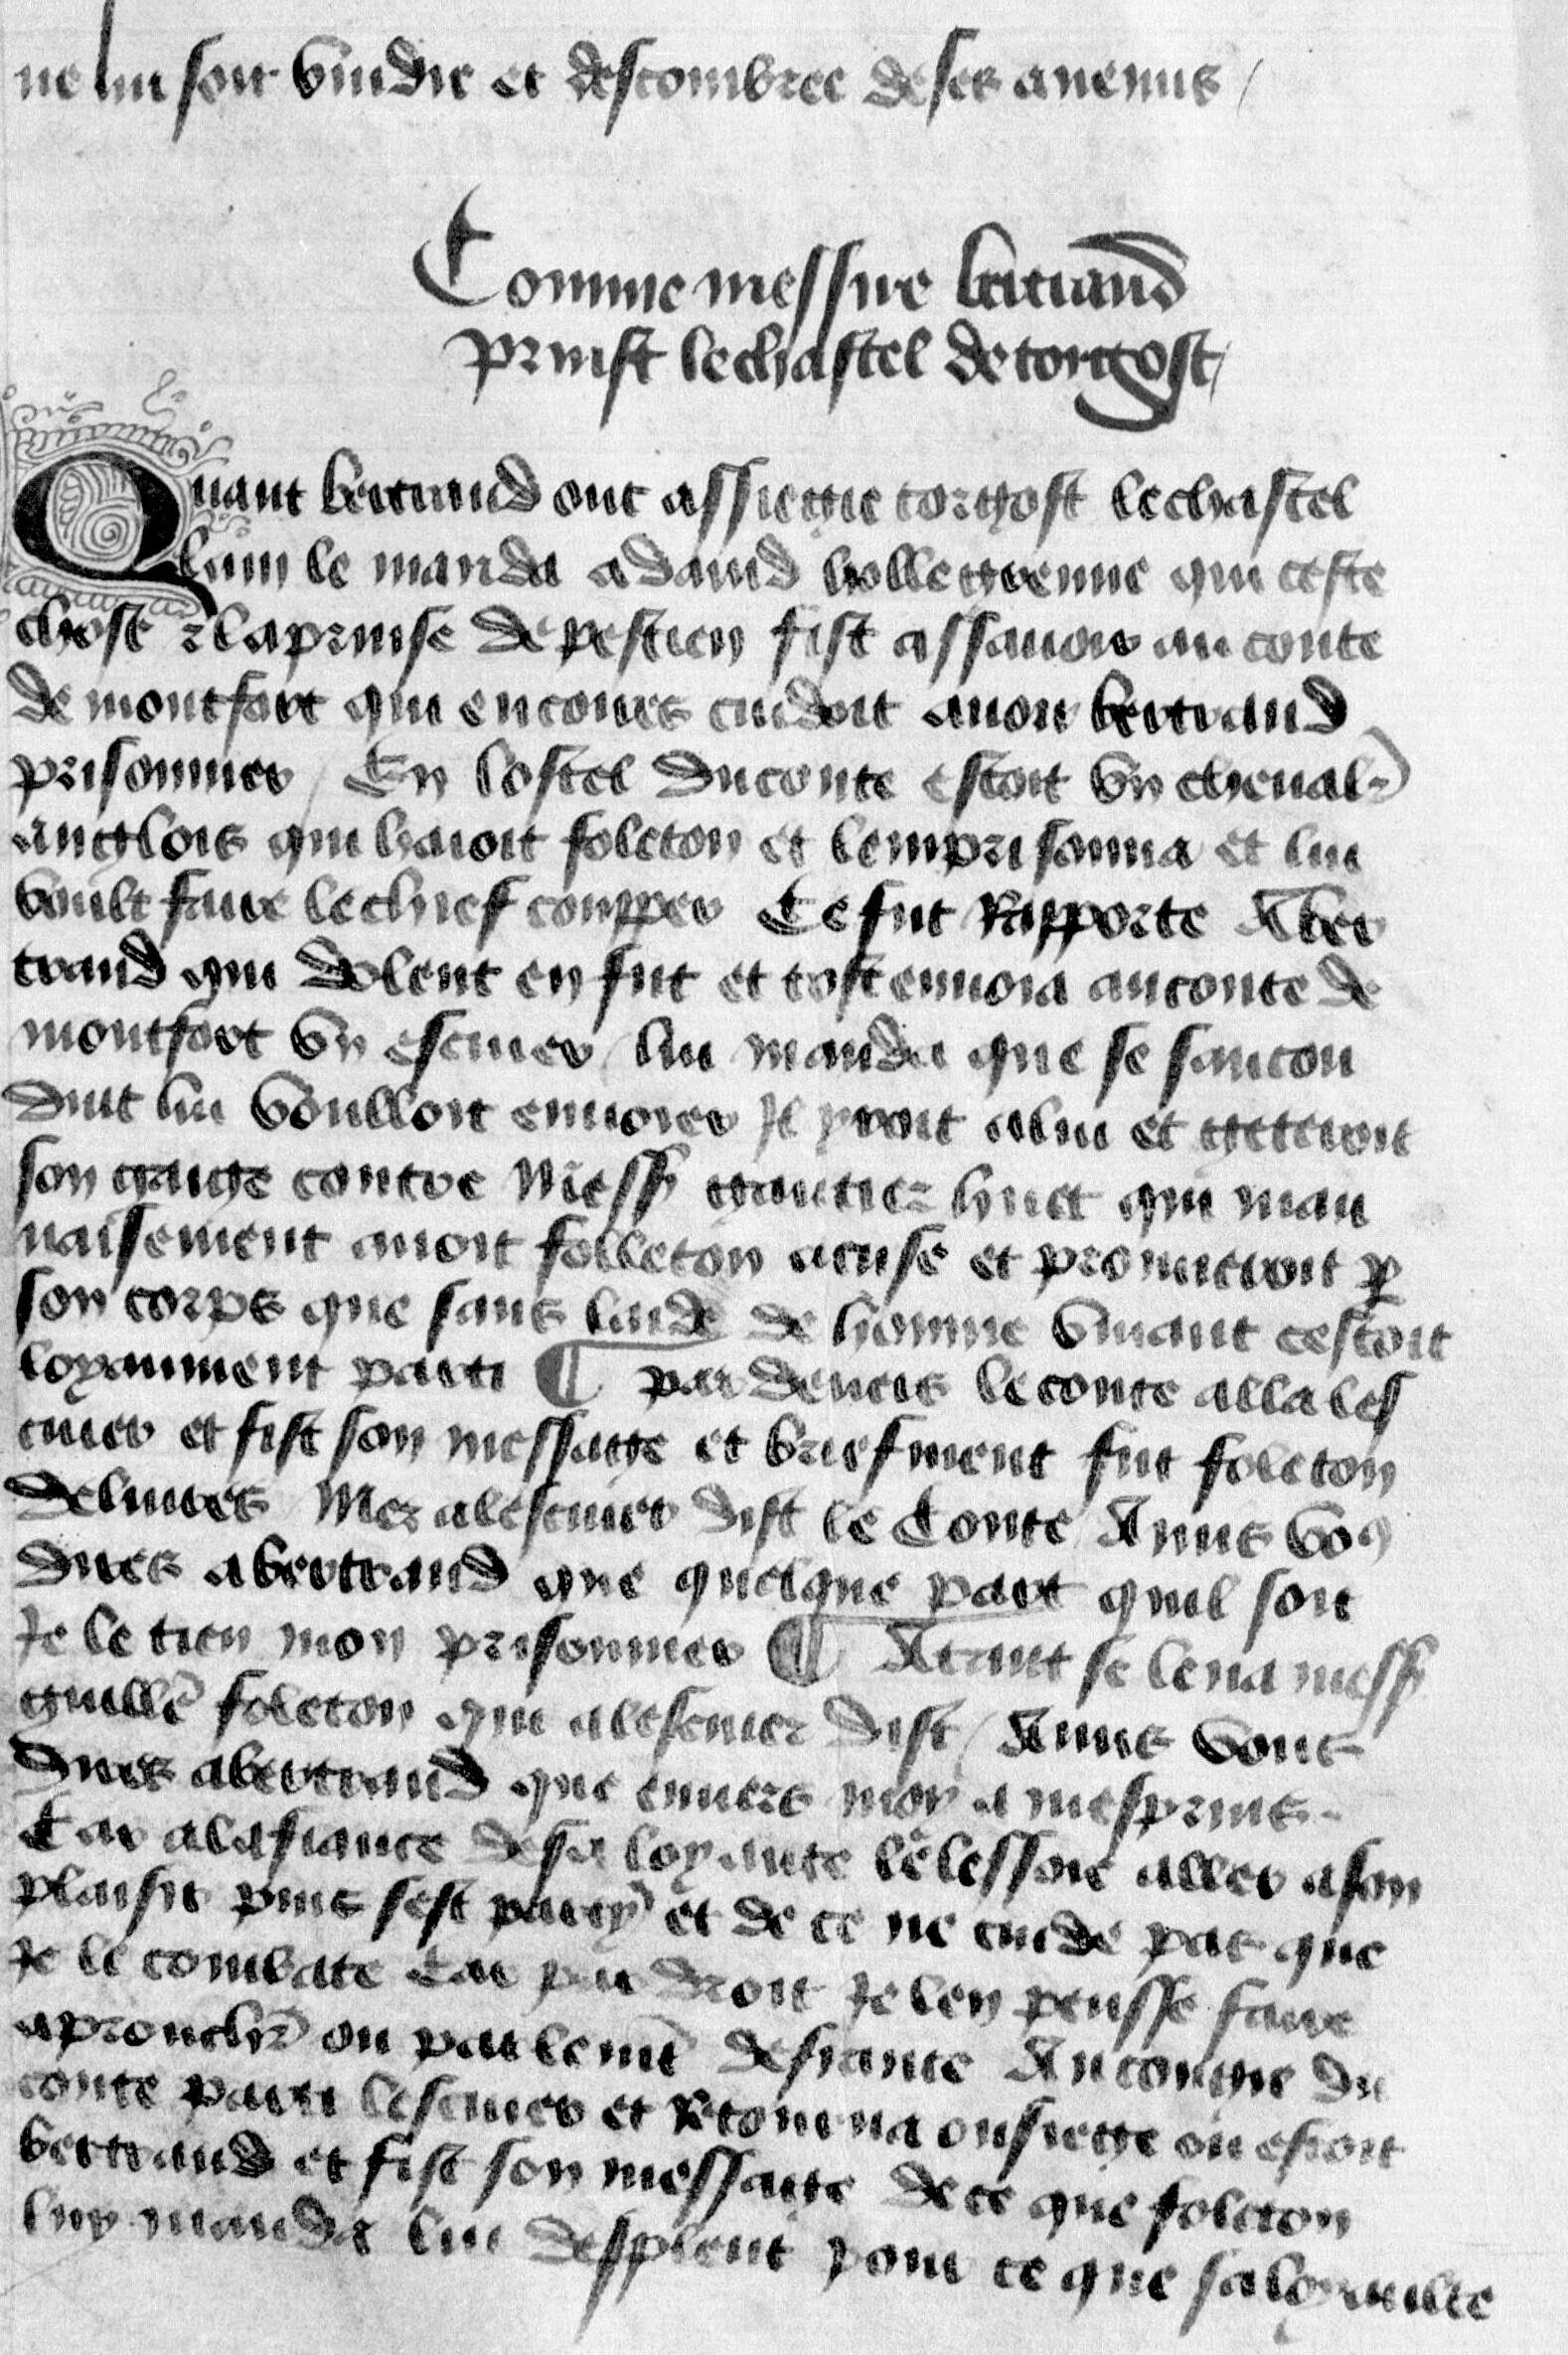 ne lui soit vuidie et descombree de ses anemis /
Comme messire bertrand
prinst le chastel de torigost /
Quant bertrand out assiegie torgost le chastel
lain le manda a dauid hollegrenne qui ceste
chose & la prinse de pestien fist assauoir au conte
de montfort qui encores cuidoit auoir bertrand
prisonnier / En lostel du conte estoit vn cheual
anglois qui haioit foleton et lemprisonna et lui
voult faire le chief coupper Ce fut Rapporte A ber
trand qui dolent en fut et tost enuoia au conte de
montfort vn escuier / lui manda que se saufcon
duit lui voulloit enuoier Il yroit a lui et getteroit
son gaige contre Mess gautier huet qui mau
uaisement auoit folleton acuse et promettoit p
son corps que sans laide de homme viuant cestoit
loyaument parti ¶ par deuers le conte alla les
cuier et fist son messaige et briefment fut foleton
deliures / Mez a lescuier dist le Conte / Amis vo9
dires a bertrand que quelque part quil soit
Je le tien mon prisonnier ¶ Atant se leua mess
guille foleton qui a lescuier dist / Amis vous
dires a bertrand que enuers moy a mesprins
Car a la fiance de sa loyaute le lessoie aller a son
plaisir puis sest party et de ce ne cuide pas que
Je le combate Car par droit Je len peusse faire
aprouchr ou parlemt de fiance Au congie du
conte parti lescuier et Retourna ou siege ou estoit
bertrand et fist son messaige de ce que foleton
luy manda lui despleut pour ce que sa loyaulte